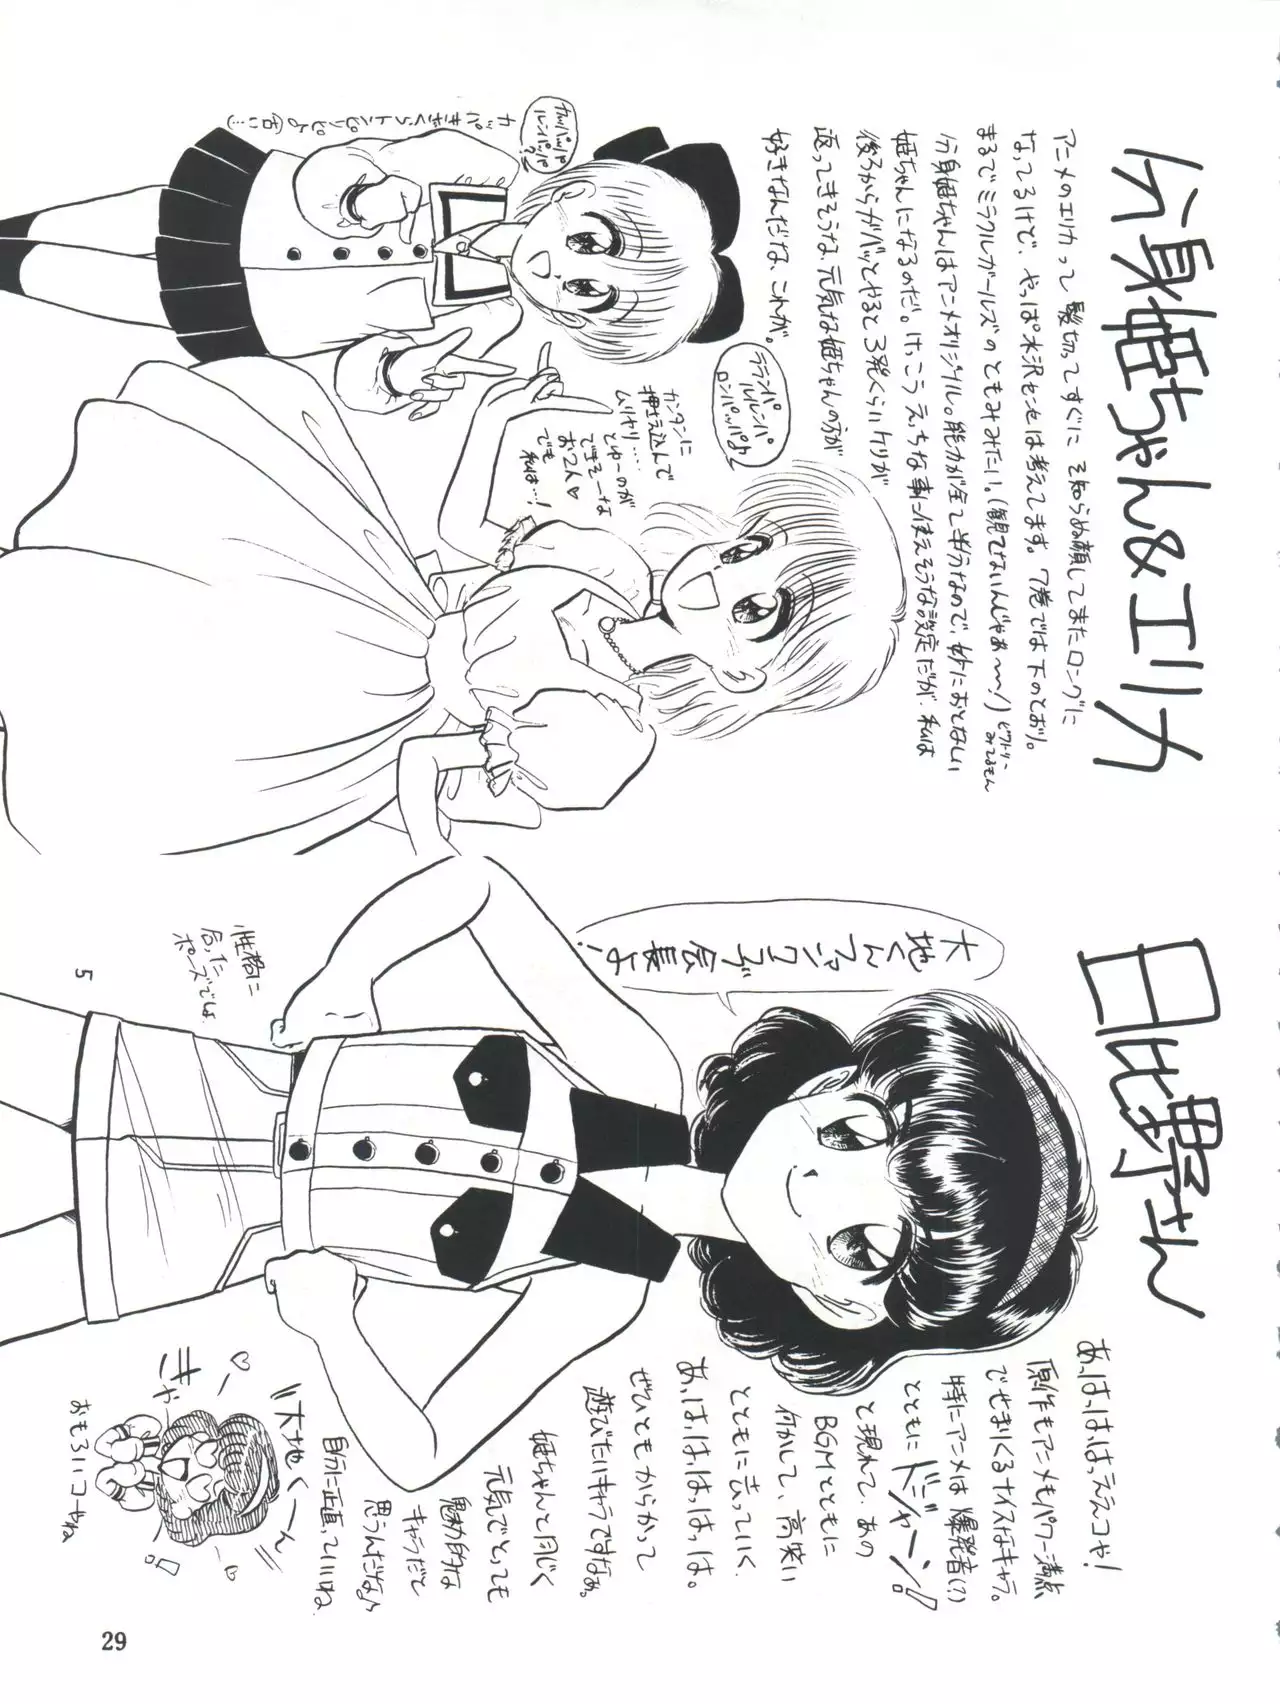 分身姫ちゃん&エリカ
アニメのエリカって髪切ってすぐに そ知らぬ顔してまたロングに
なってるけど、やっぱ水沢センセは考えてます。7巻では下のとおり。
まるでミラクルガールズのともみみたい。(観てないんじゃあ〜!)
分身姫ちゃんはアニメオリジナル。能力が全て半分なので、妙におとなしい
姫ちゃんになるのだ。けっこうえっちな事に使えそうな設定だが、私は
後ろからガバッとやると3発くらいケリが
返ってきそうな、元気な姫ちゃんの方が
好きなんだな、これが。
ラランパ
ルルレンパ
ロンパッパよ
カンタンに
押さえ込んで
ムリヤリ……
とゆーのが
できそーな
お2人♡
でも
私は…!
日比野さん
大地くんファンクラブ会長よ!
あ、は、は、はっええコや!
原作もアニメもパワー満点
でせまりくるナイスなキャラ。
特にアニメは爆発者(?)
とともにドジャーン!
と現れて、あの
BGMとともに
何かして、高笑い
とともに去っていく。
あ、は、は、は、は、は。
ぜひともからかって
遊びたいキャラですなぁ。
姫ちゃんと同じく
元気でとっても
魅力的な
キャラだと
思うんだなよ
自分に正直っていいね
性格に
合った
ポーズでしょ
5
大地くーん
きゃー
おもろいコやね
29